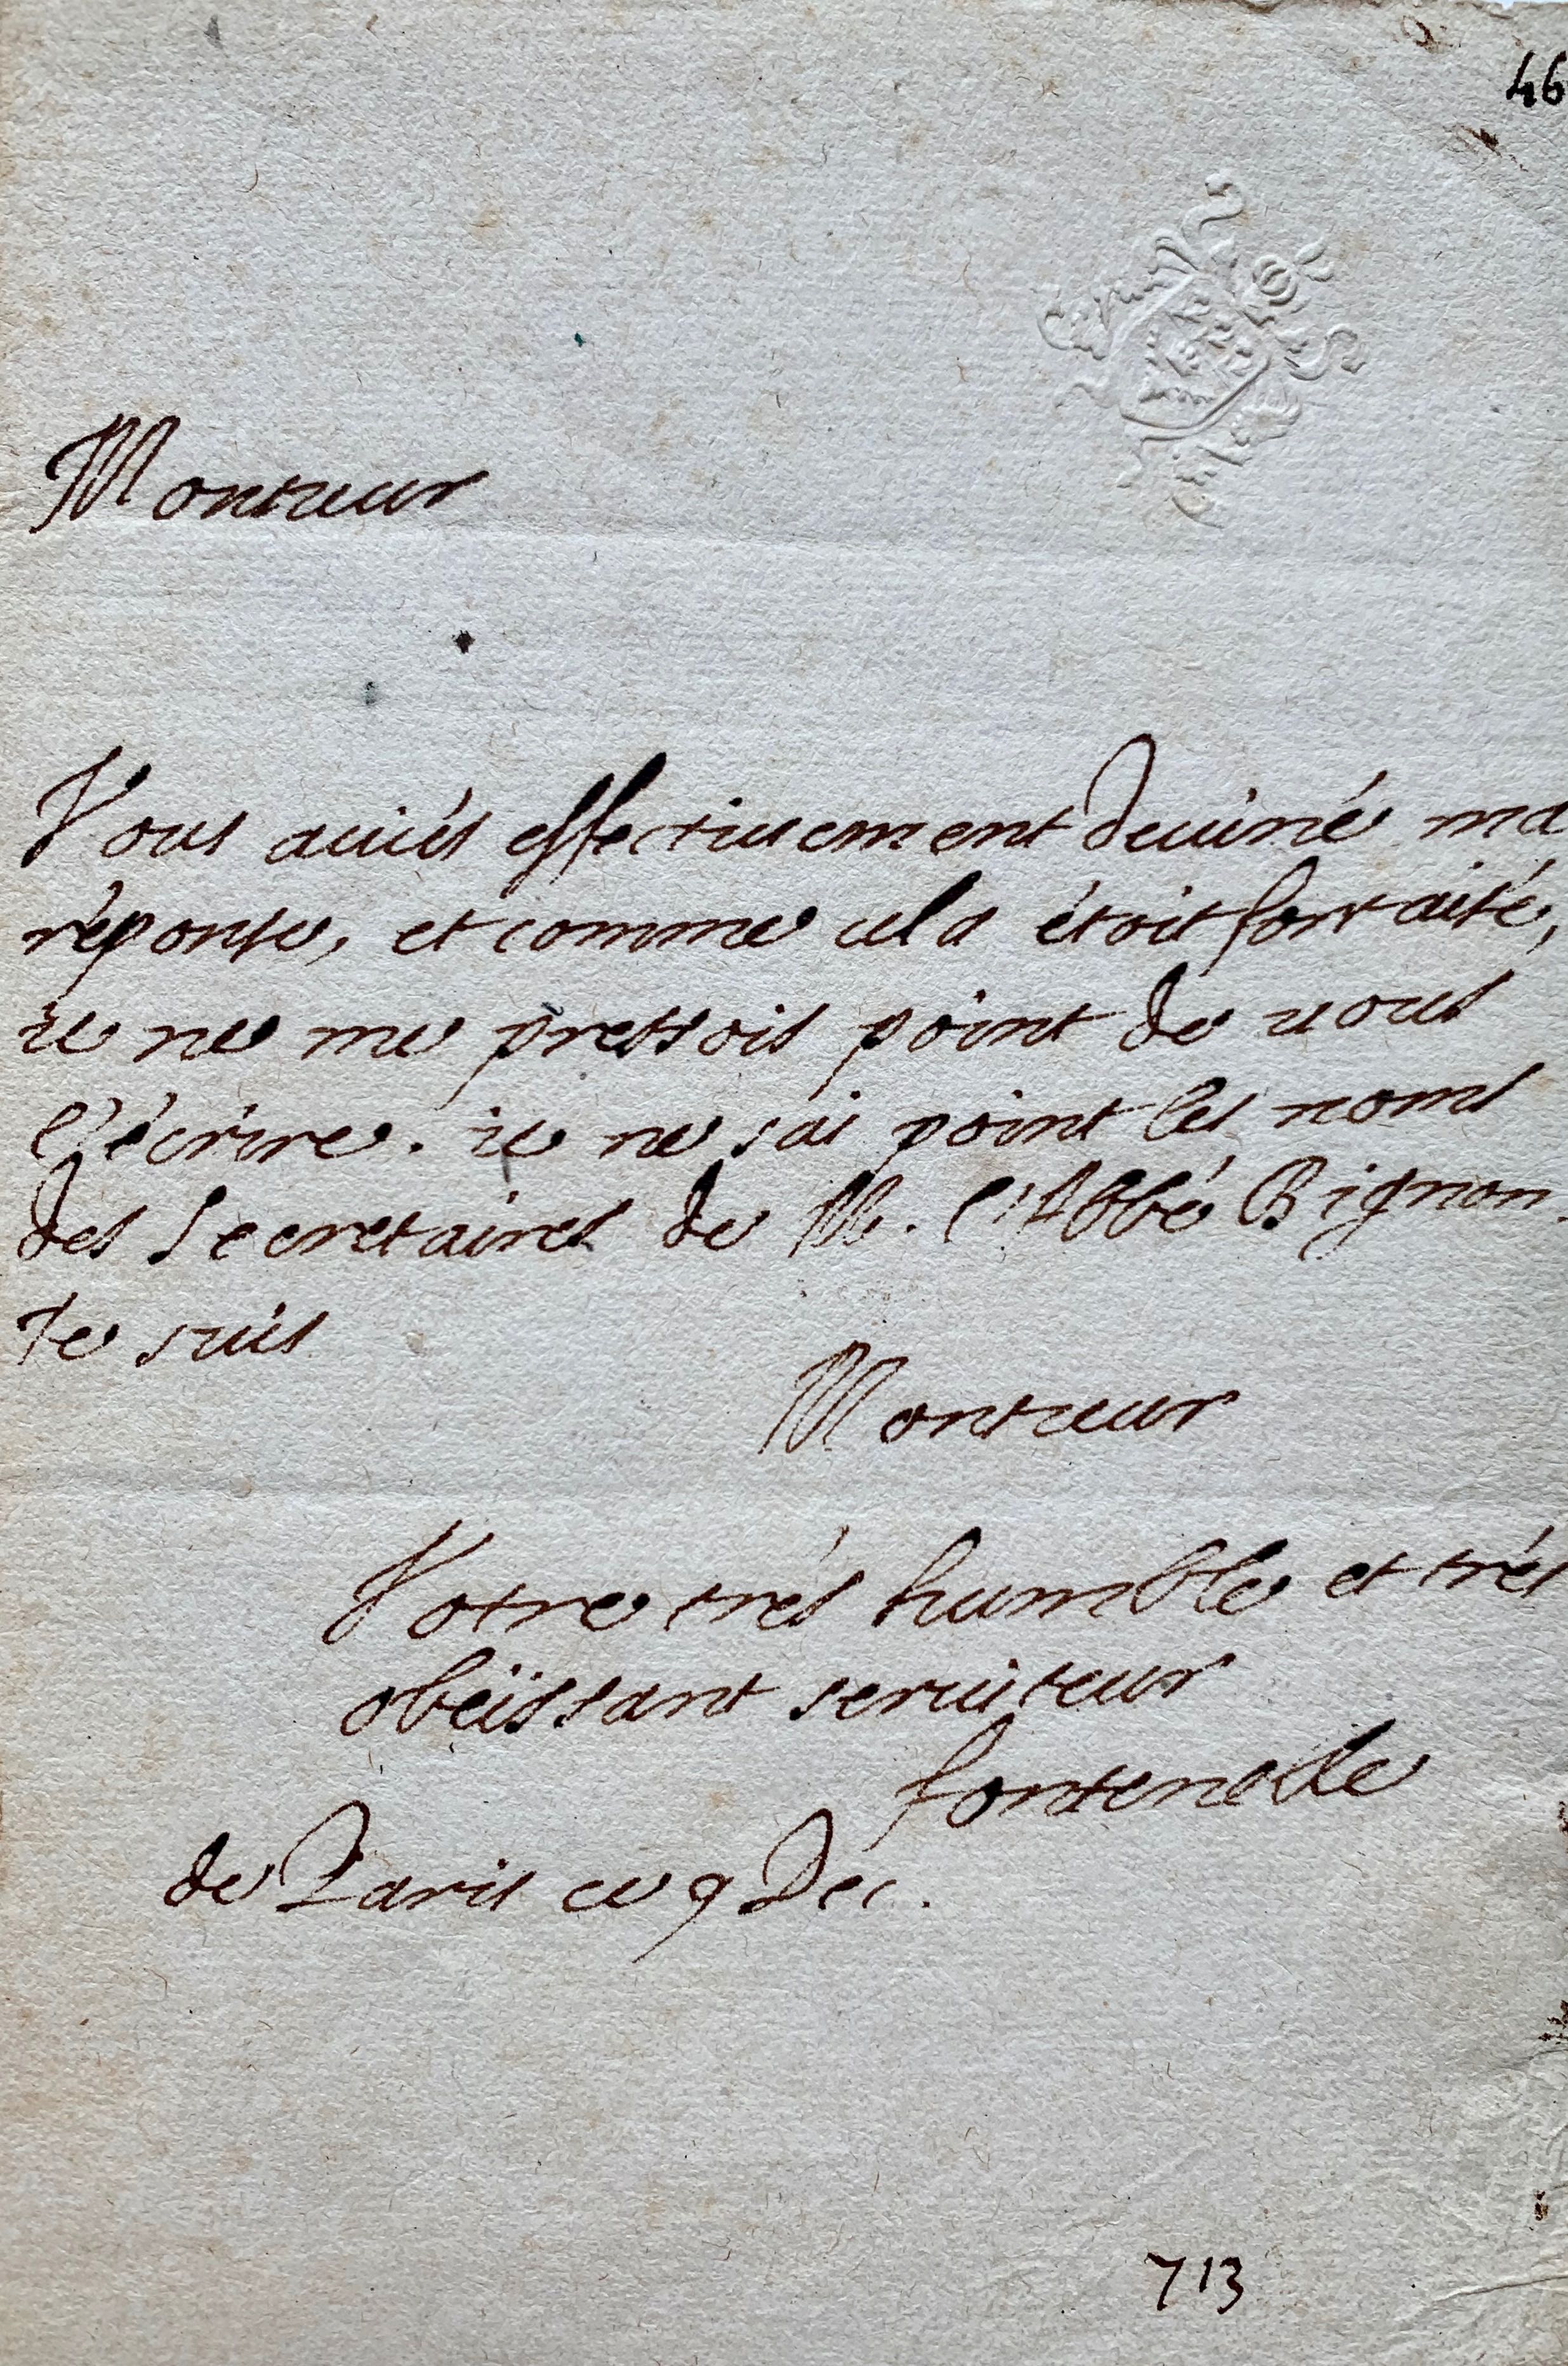 46
Monsieur
Vous aviés effectivement deviné ma
réponse, et comme cela étoit fort aisé,
ie ne me pressois point de vous
l'écrire. ie ne sai point les noms
des Secretaires de M. l'Abbé Bignon.
Je suis
Monsieur
Votre trés humble et trés
obëissant serviteur
fontenelle
de Paris ce 9 Dec.
713